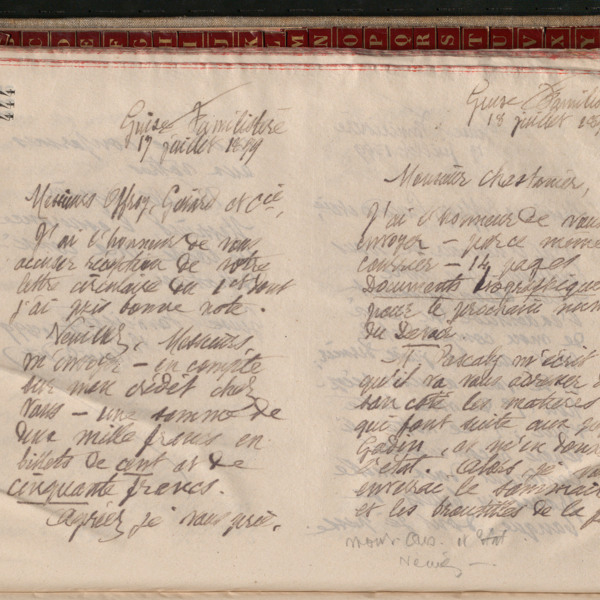 C D E F G H I J K L M N O P Q R S T U V X Y
444
Guise Familistère
17 juillet 1889
Messieurs Offroy, Guiard et Cie,
J'ai l'honneur de vous
accuser réception de votre
lettre circulaire du 1er dont
j'ai pris bonne note.
Veuillez, Messieurs,
m'envoyer – en compte
sur mon crédit chez
vous – une somme de
deux mille francs en
billets de cent et de
cinquante francs.
Agréez, je vous prie,
Guise Famili
18 juillet 188
Monsieur Chestanier,
J'ai l'honneur de vous
envoyer – par ce même
courrier – 14 pages
Documents biographiques
pour le prochain num
du Devoir
M. Pascaly m'écrit
qu'il va vous adresser de
son côté les matières
qui font suite aux
Godin, et m'en donne
l'état.
enverrai le sommaire
et les